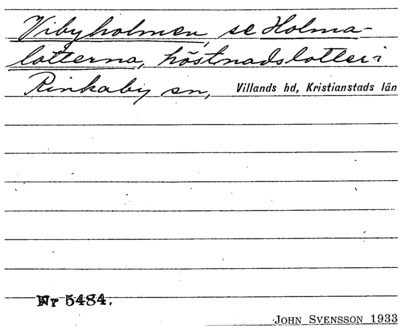 Vibyholmen, se Holma-
lotterna, höstnadslotter i
Rinkaby sn, Villands hd, Kristianstads län
Nr 5484.
JOHN SVENSSON 1933